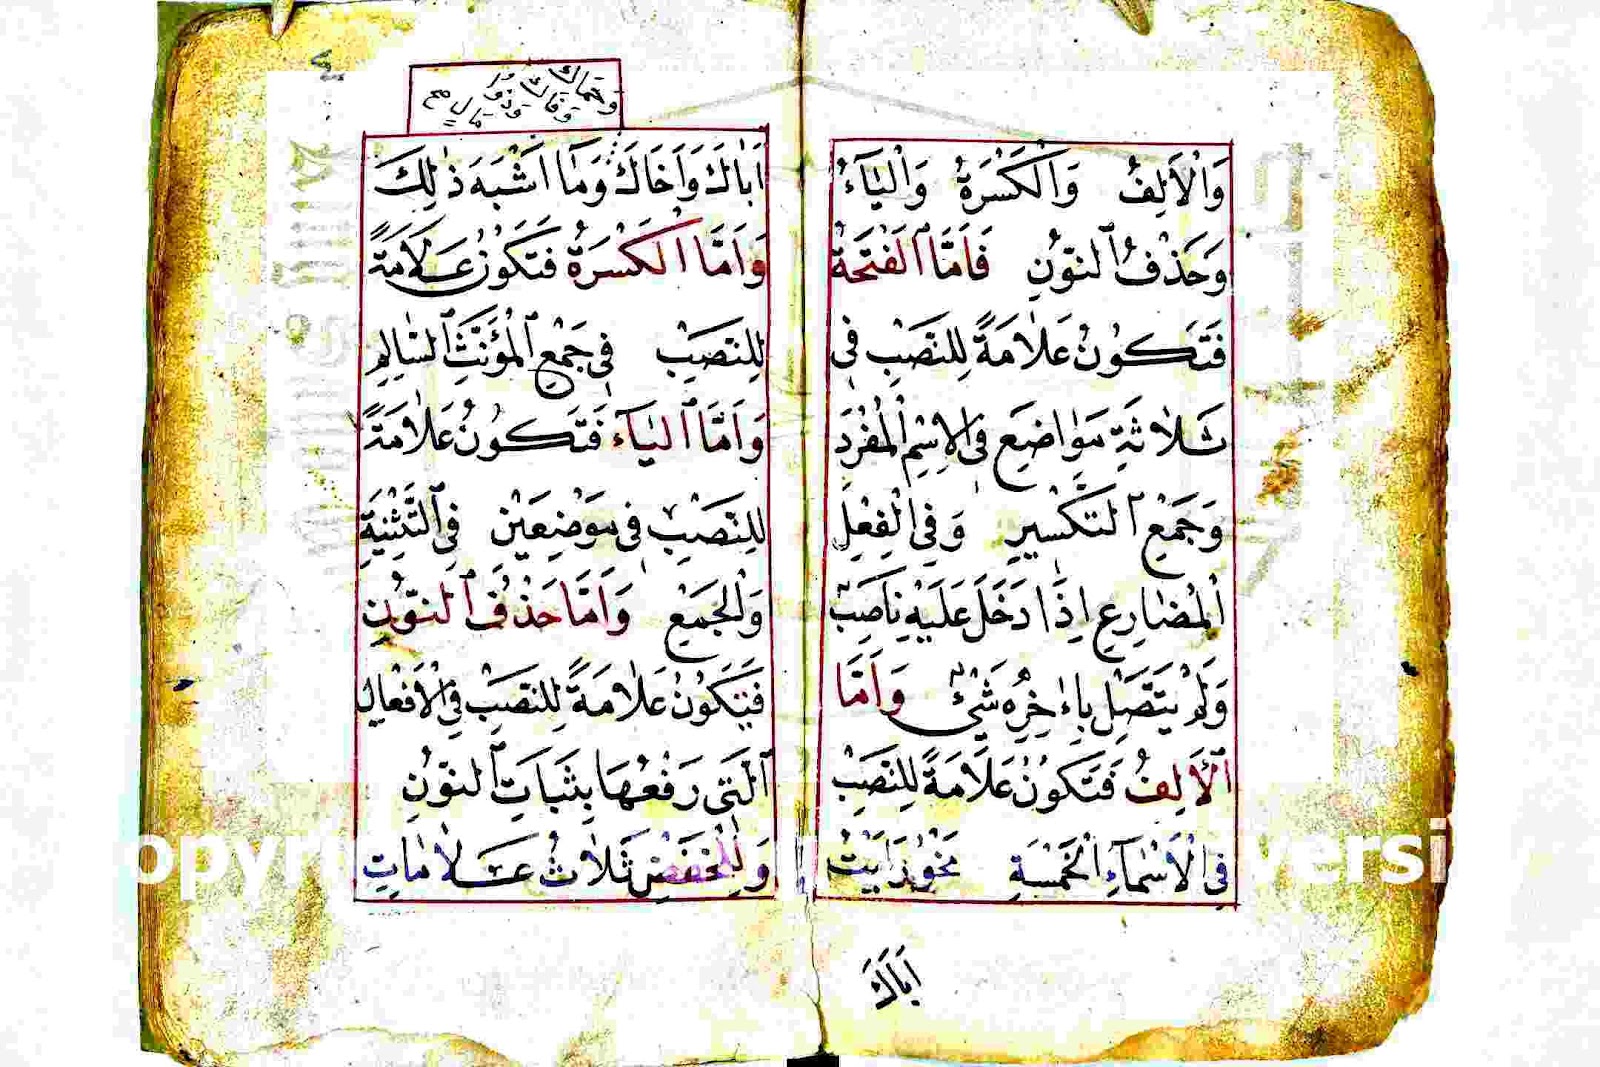 وَالْأَلِفُ وَالْكَسْرَةُ وَالْيَاءُ
وَحَذْفُ النُّوْنِ فَاَمَّا الْفَتْحَةُ
فَتَكُوْنُ عَلَامَةً لِلنَّصْبِ فِى
ثَلَاثَةِ مَوَاضِعَ فِى الْاِسْمِ الْمُفْرَدِ
وَجَمْعِ التَّكْسِيْرِ وَفِى الْفِعْلِ
الْمُضَارِعِ اِذَا دَخَلَ عَلَيْهِ نَاصِبٌ
وَلَمْ يَتَّصِلْ بِاٰخِرِهِ شَيْءٌ وَاَمَّا
الْأَلِفُ فَتَكُوْنُ عَلَامَةً لِلنَّصْبِ
فِى الْاَسْمَاءِ الْخَمْسَةِ نَحْوُ رَاَيْتُ
اَبَاكَ
وَحَمَاكَ
وَفَاكَ
وَذُوْ
مَالٍ صح
اَبَاكَ وَاَخَاكَ وَمَا اَشْبَهَ ذٰلِكَ
وَاَمَّا الْكَسْرَةُ فَتَكُوْنُ عَلَامَةً
لِلنَّصْبِ فِى جَمْعِ الْمُؤَنَّثِ السَّالِمِ
وَاَمَّا الْيَاءُ فَتَكُوْنُ عَلَامَةً
لِلنَّصْبِ فِى مَوْضِعَيْنِ فِى التَّثْنِيَةِ
وَالْجَمْعِ وَاَمَّا حَذْفُ النُّوْنِ
فَيَكُوْنُ عَلَامَةً لِلنَّصْبِ فِى الْاَفْعَالِ
الَّتِى رَفْعُهَا بِثَبَاتِ النُّوْنِ
وَلِلْخَفْضِ ثَلَاثُ عَلَامَاتٍ